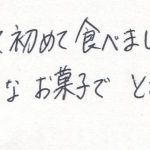 初めて食べまし
な お菓子で と